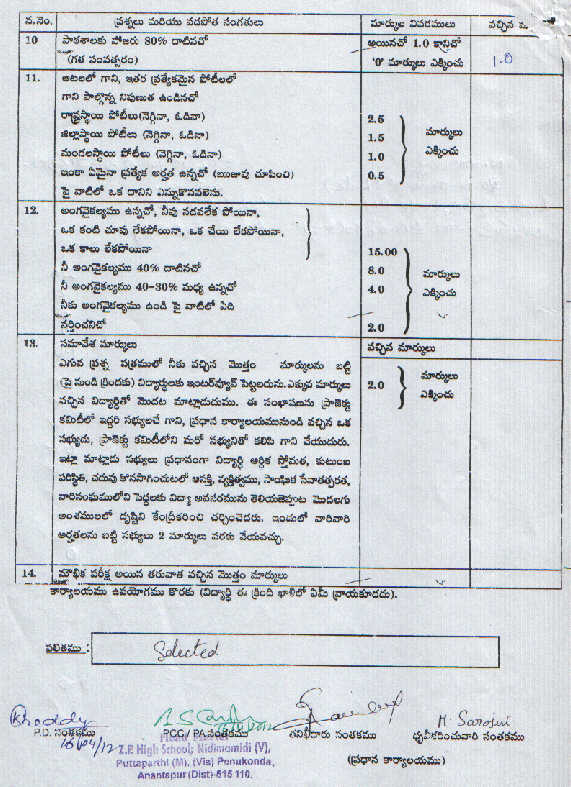 వ.నెం. ప్రశ్నలు మరియు వడపోత సంగతులు మార్కుల వివరములు వచ్చిన
10 పాఠశాలకు హాజరు 80% దాటినచో అయినచో 1.0 కానిచో 1.0
(గత సంవత్సరం) '0' మార్కులు ఎక్కించు
11. ఆటలలో గాని, ఇతర ప్రత్యేకమైన పోటీలలో
గాని పాల్గొన్న నిపుణత ఉండినచో
రాష్ట్రస్థాయి పోటీలు(నెగ్గినా, ఓడినా) 2.5
జిల్లాస్థాయి పోటీలు (నెగ్గినా, ఓడినా) 1.5 మార్కులు
మండలస్థాయి పోటీలు (నెగ్గినా, ఓడినా) 1.0 ఎక్కించు
ఇంకా ఏమైనా ప్రత్యేక అర్హత ఉన్నచో (ఋజువు చూపించి) 0.5
పై వాటిలో ఒక దానిని ఎన్నుకొనవలెను.
12. అంగవైకల్యము ఉన్నచో, నీవు నడవలేక పోయినా,
ఒక కంటి చూపు లేకపోయినా, ఒక చేయి లేకపోయినా,
ఒక కాలు లేకపోయినా 15.00
నీ అంగవైకల్యము 40% దాటినచో 8.0 మార్కులు
నీ అంగవైకల్యము 40-30% మధ్య ఉన్నచో 4.0 ఎక్కించు
నీకు అంగవైకల్యము ఉండి పై వాటిలో ఏది
వర్తించనిచో 2.0
13. సమావేశ మార్కులు వచ్చిన మార్కులు
ఎగువ ప్రశ్న పత్రములో నీకు వచ్చిన మొత్తం మార్కులను బట్టి
(పై నుండి క్రిందకు) విద్యార్థులకు ఇంటర్వ్యూకే పెట్టబడును.ఎక్కువ మార్కులు 2.0 మార్కులు
వచ్చిన విద్యార్థితో మొదట మాట్లాడుదుము. ఈ సంభాషణను ప్రాజెక్టు ఎక్కించు
కమిటీలో ఇద్దరి సభ్యులచే గాని, ప్రధాన కార్యాలయమునుండి వచ్చిన ఒక
సభ్యుడు, ప్రాజెక్టు కమిటీలోని మరో సభ్యునితో కలిపి గాని చేయుదురు.
ఇట్లా మాట్లాడు సభ్యులు ప్రధానంగా విద్యార్థి ఆర్థిక స్తోమత, కుటుంబ
పరిస్థితి, చదువు కొనసాగించుటలో ఆసక్తి, వ్యక్తిత్వము, సాంఘిక సేవాతత్పరత,
వారిసంఘములోని పెద్దలకు విద్యా అవసరమును తెలియచెప్పుట మొదలగు
అంశములలో దృష్టిని కేంద్రీకరించి చర్చించెదరు. ఇందులో వారివారి
అర్హతలను బట్టి సభ్యులు 2 మార్కులు వరకు వేయవచ్చు.
14. మౌఖిక పరీక్ష అయిన తరువాత వచ్చిన మొత్తం మార్కులు
కార్యాలయము ఉపయోగము కొరకు (విద్యార్థి ఈ క్రింది ఖాళీలో ఏమీ వ్రాయకూడదు).
ఫలితము : Selected
M. Sarojini
P.D. సంతకము PCC/ PA సంతకము తనిఖీదారు సంతకము ధృవీకరించువారి సంతకము
16/04/12 Z.P. High School; Nidimamidi (V), (ప్రధాన కార్యాలయము)
Puttaparthi (M), (Via) Penukonda,
Anantapur (Dist)-515 110.